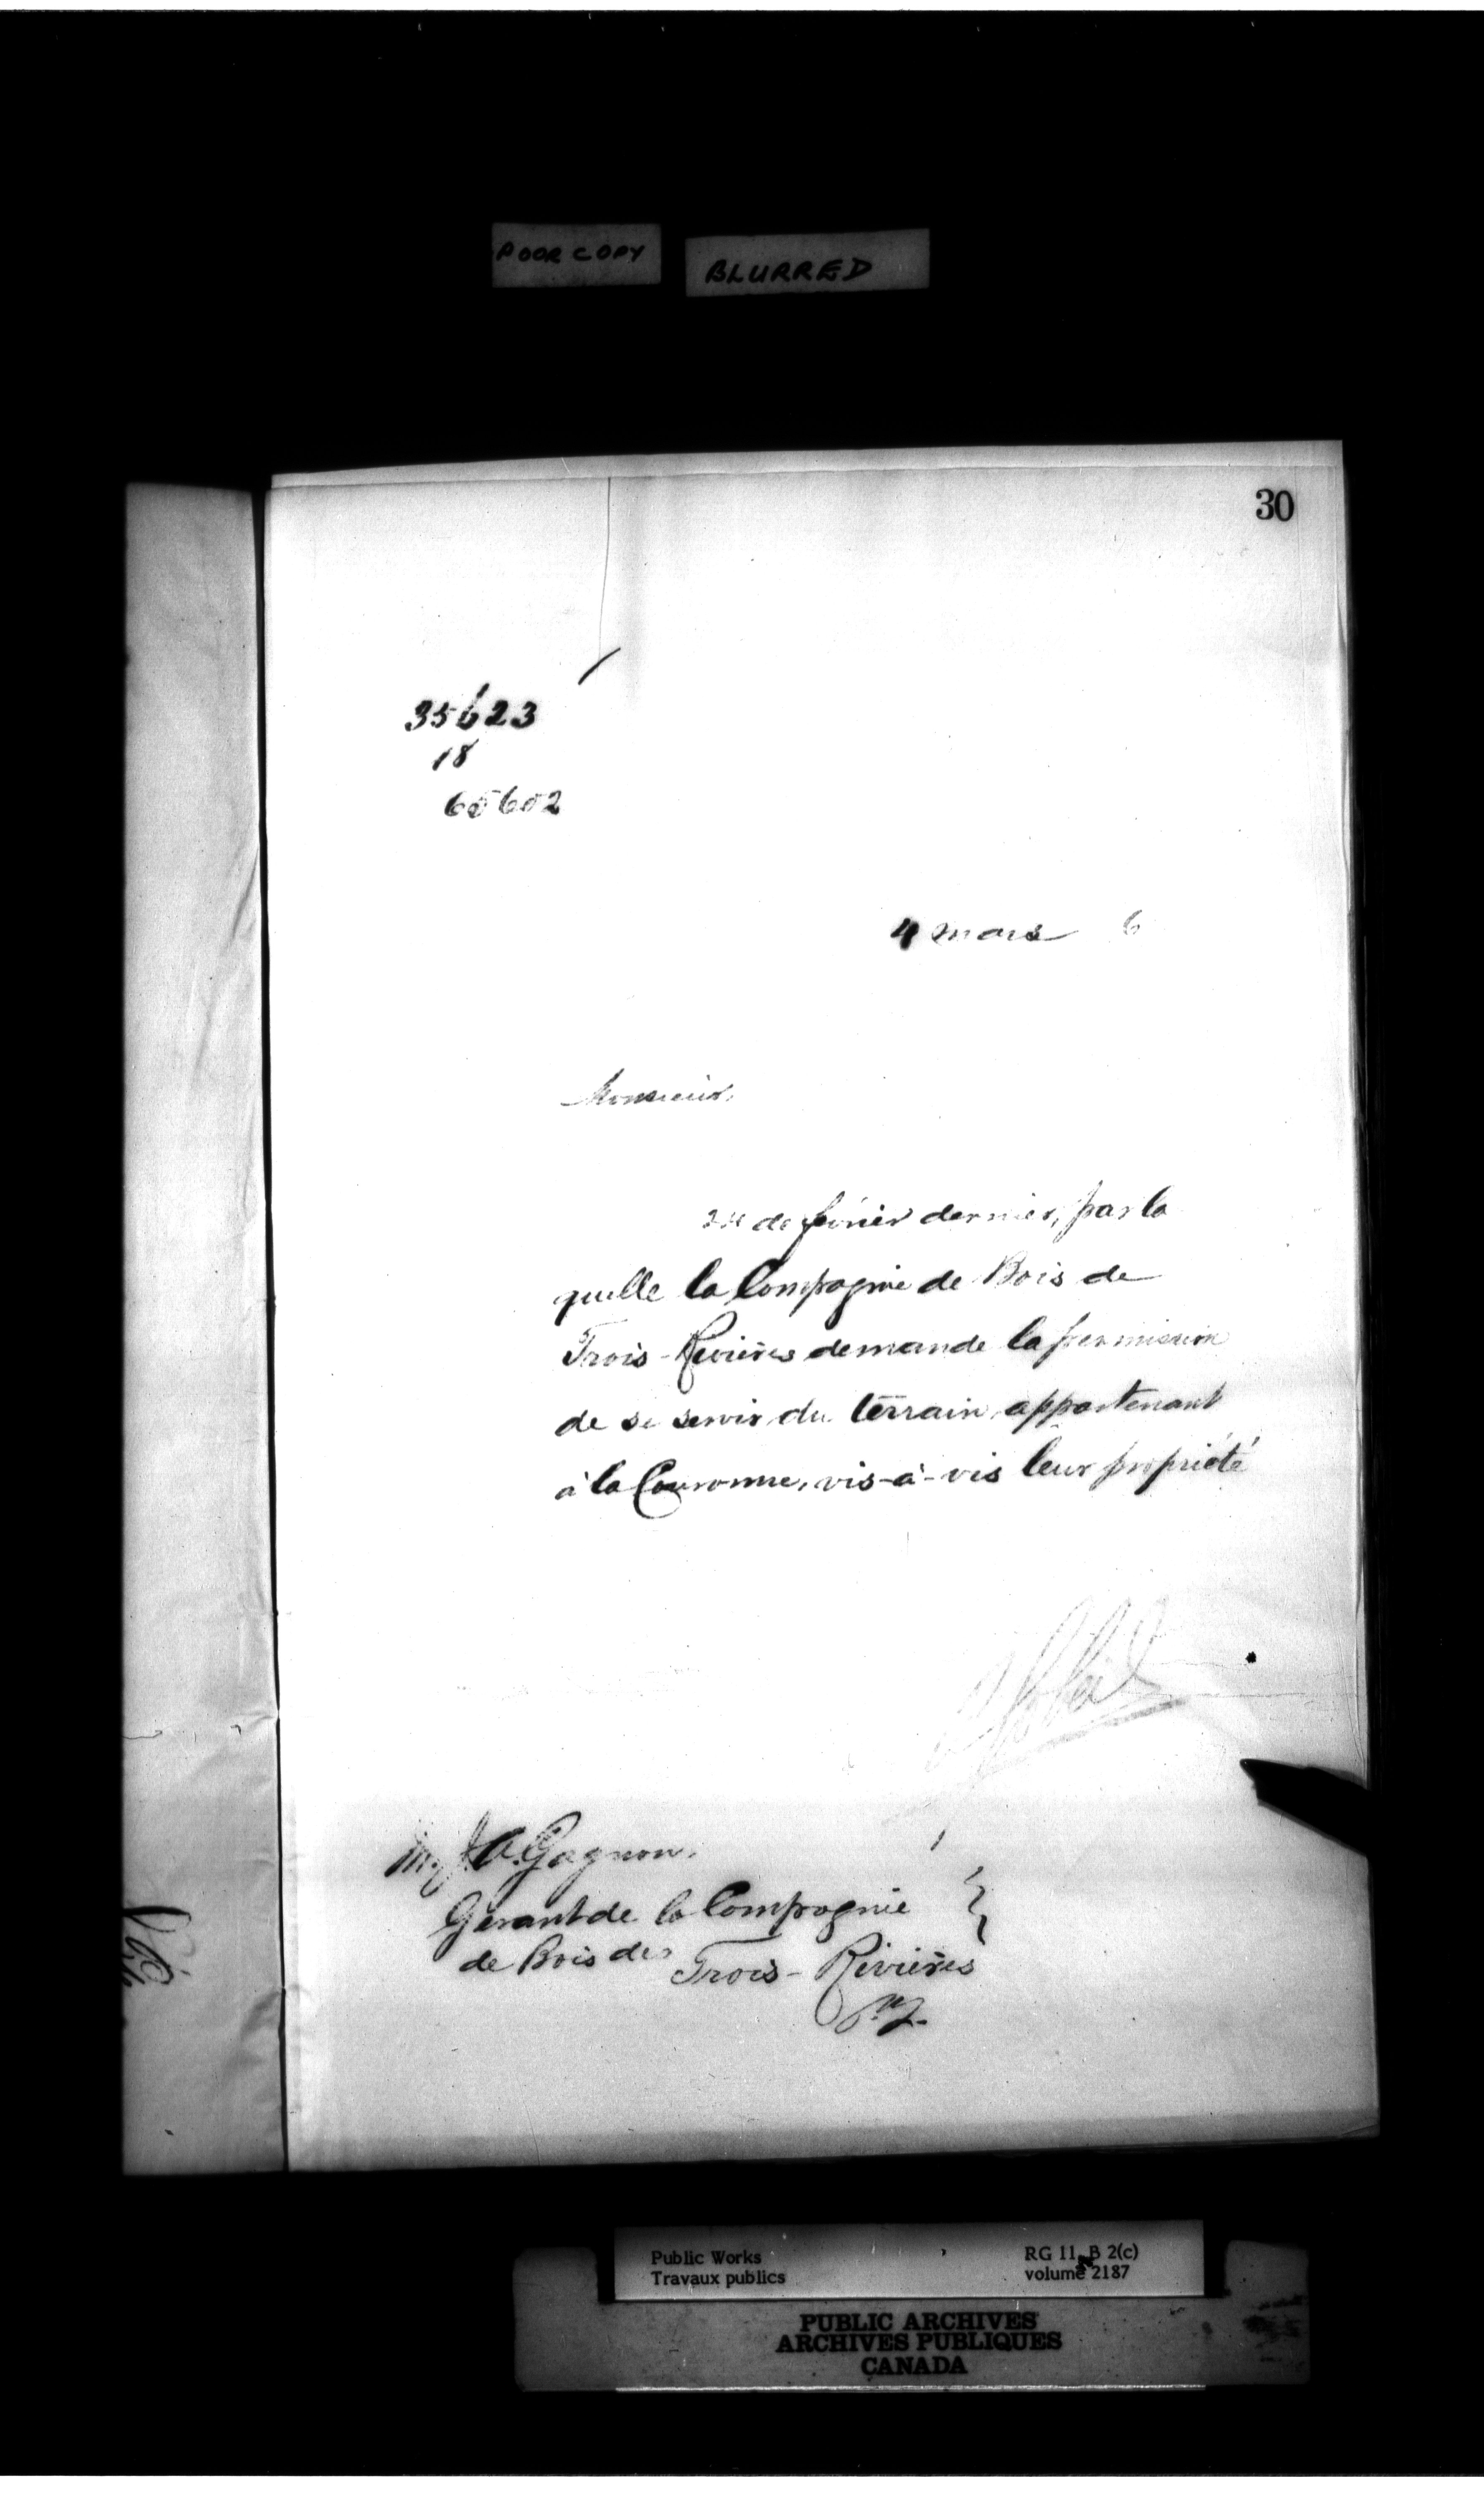 POOR COPY
BLURRED
30
35623
18
65602
4 mars 6
Monsieur,
24 de févrièr dernier, par la
quelle la Compagnie de Bois de
Trois-Rivières demande la permission
de se servir du terrain appartenant
à la Couronne, vis-à-vis leur propriété
M. J. A. Gagnon.
Gérant de la Compagnie
de Bois des Trois-Rivières
P.Q.
Public Works
Travaux publics
RG 11, B 2(c)
volume 2187
PUBLIC ARCHIVES
ARCHIVES PUBLIQUES
CANADA